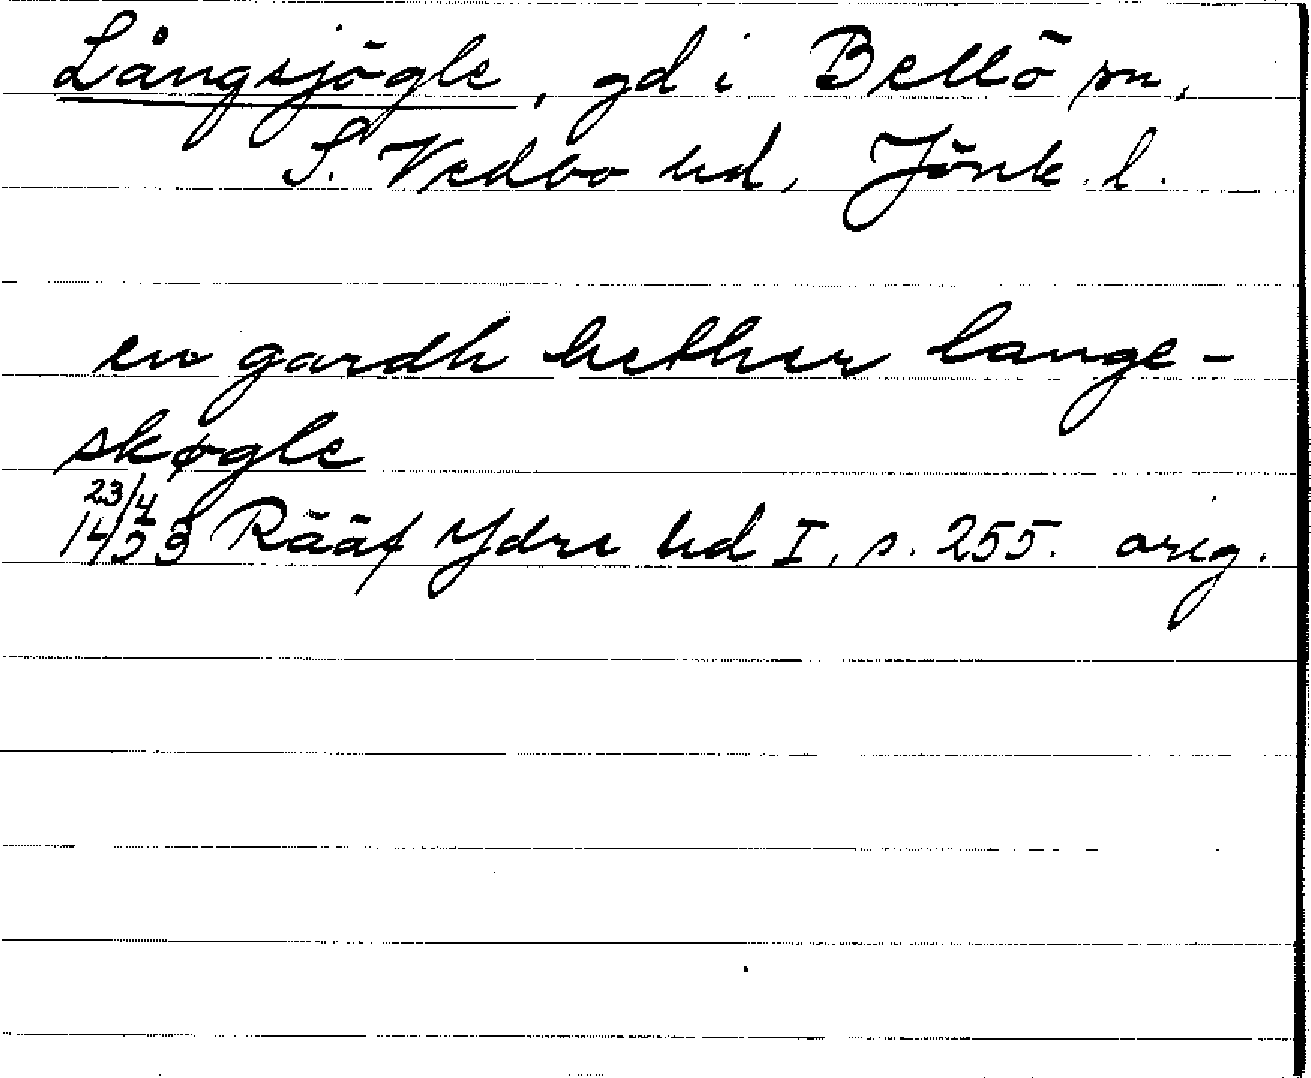 Långsjögle, gd i Bellö sn,
S. Vedbo hd, Jönk. l.
en gardh hether lange-
skøgle
23/4
1453 Rääf Ydre hd I, s. 255. orig.